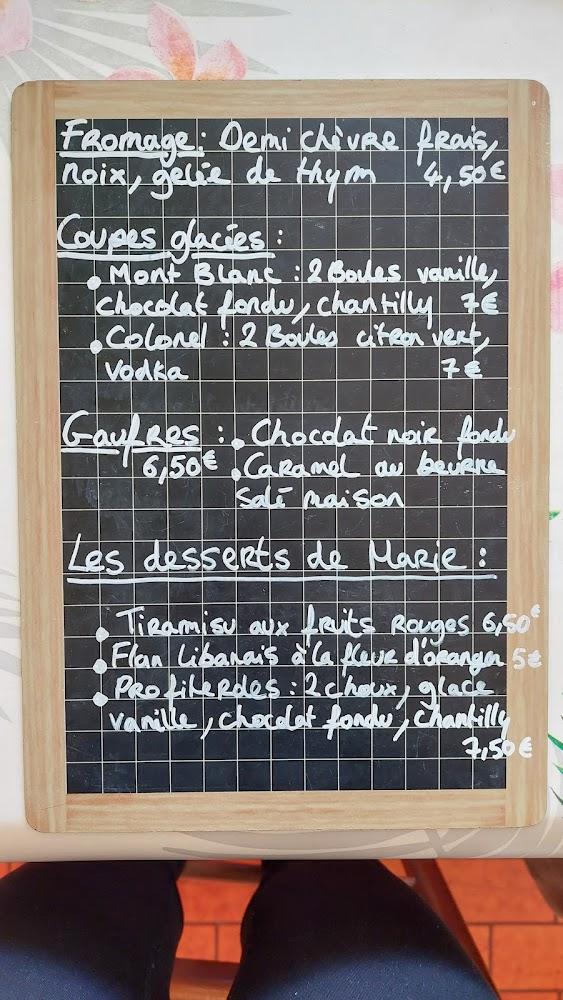 Fromage : Demi chèvre frais,
noix, gelée de thym 4,50€
Coupes glacées :
• Mont Blanc : 2 Boules vanille,
chocolat fondu, chantilly 7€
• Colonel : 2 Boules citron vert,
vodka 7€
Gaufres : • Chocolat noir fondu
6,50€ • Caramel au beurre
salé maison
Les desserts de Marie :
• Tiramisu aux fruits Rouges 6,50€
• Flan Libanais à la fleur d'oranger 5€
• Profiteroles : 2 choux, glace
vanille, chocolat fondu, chantilly
7,50€